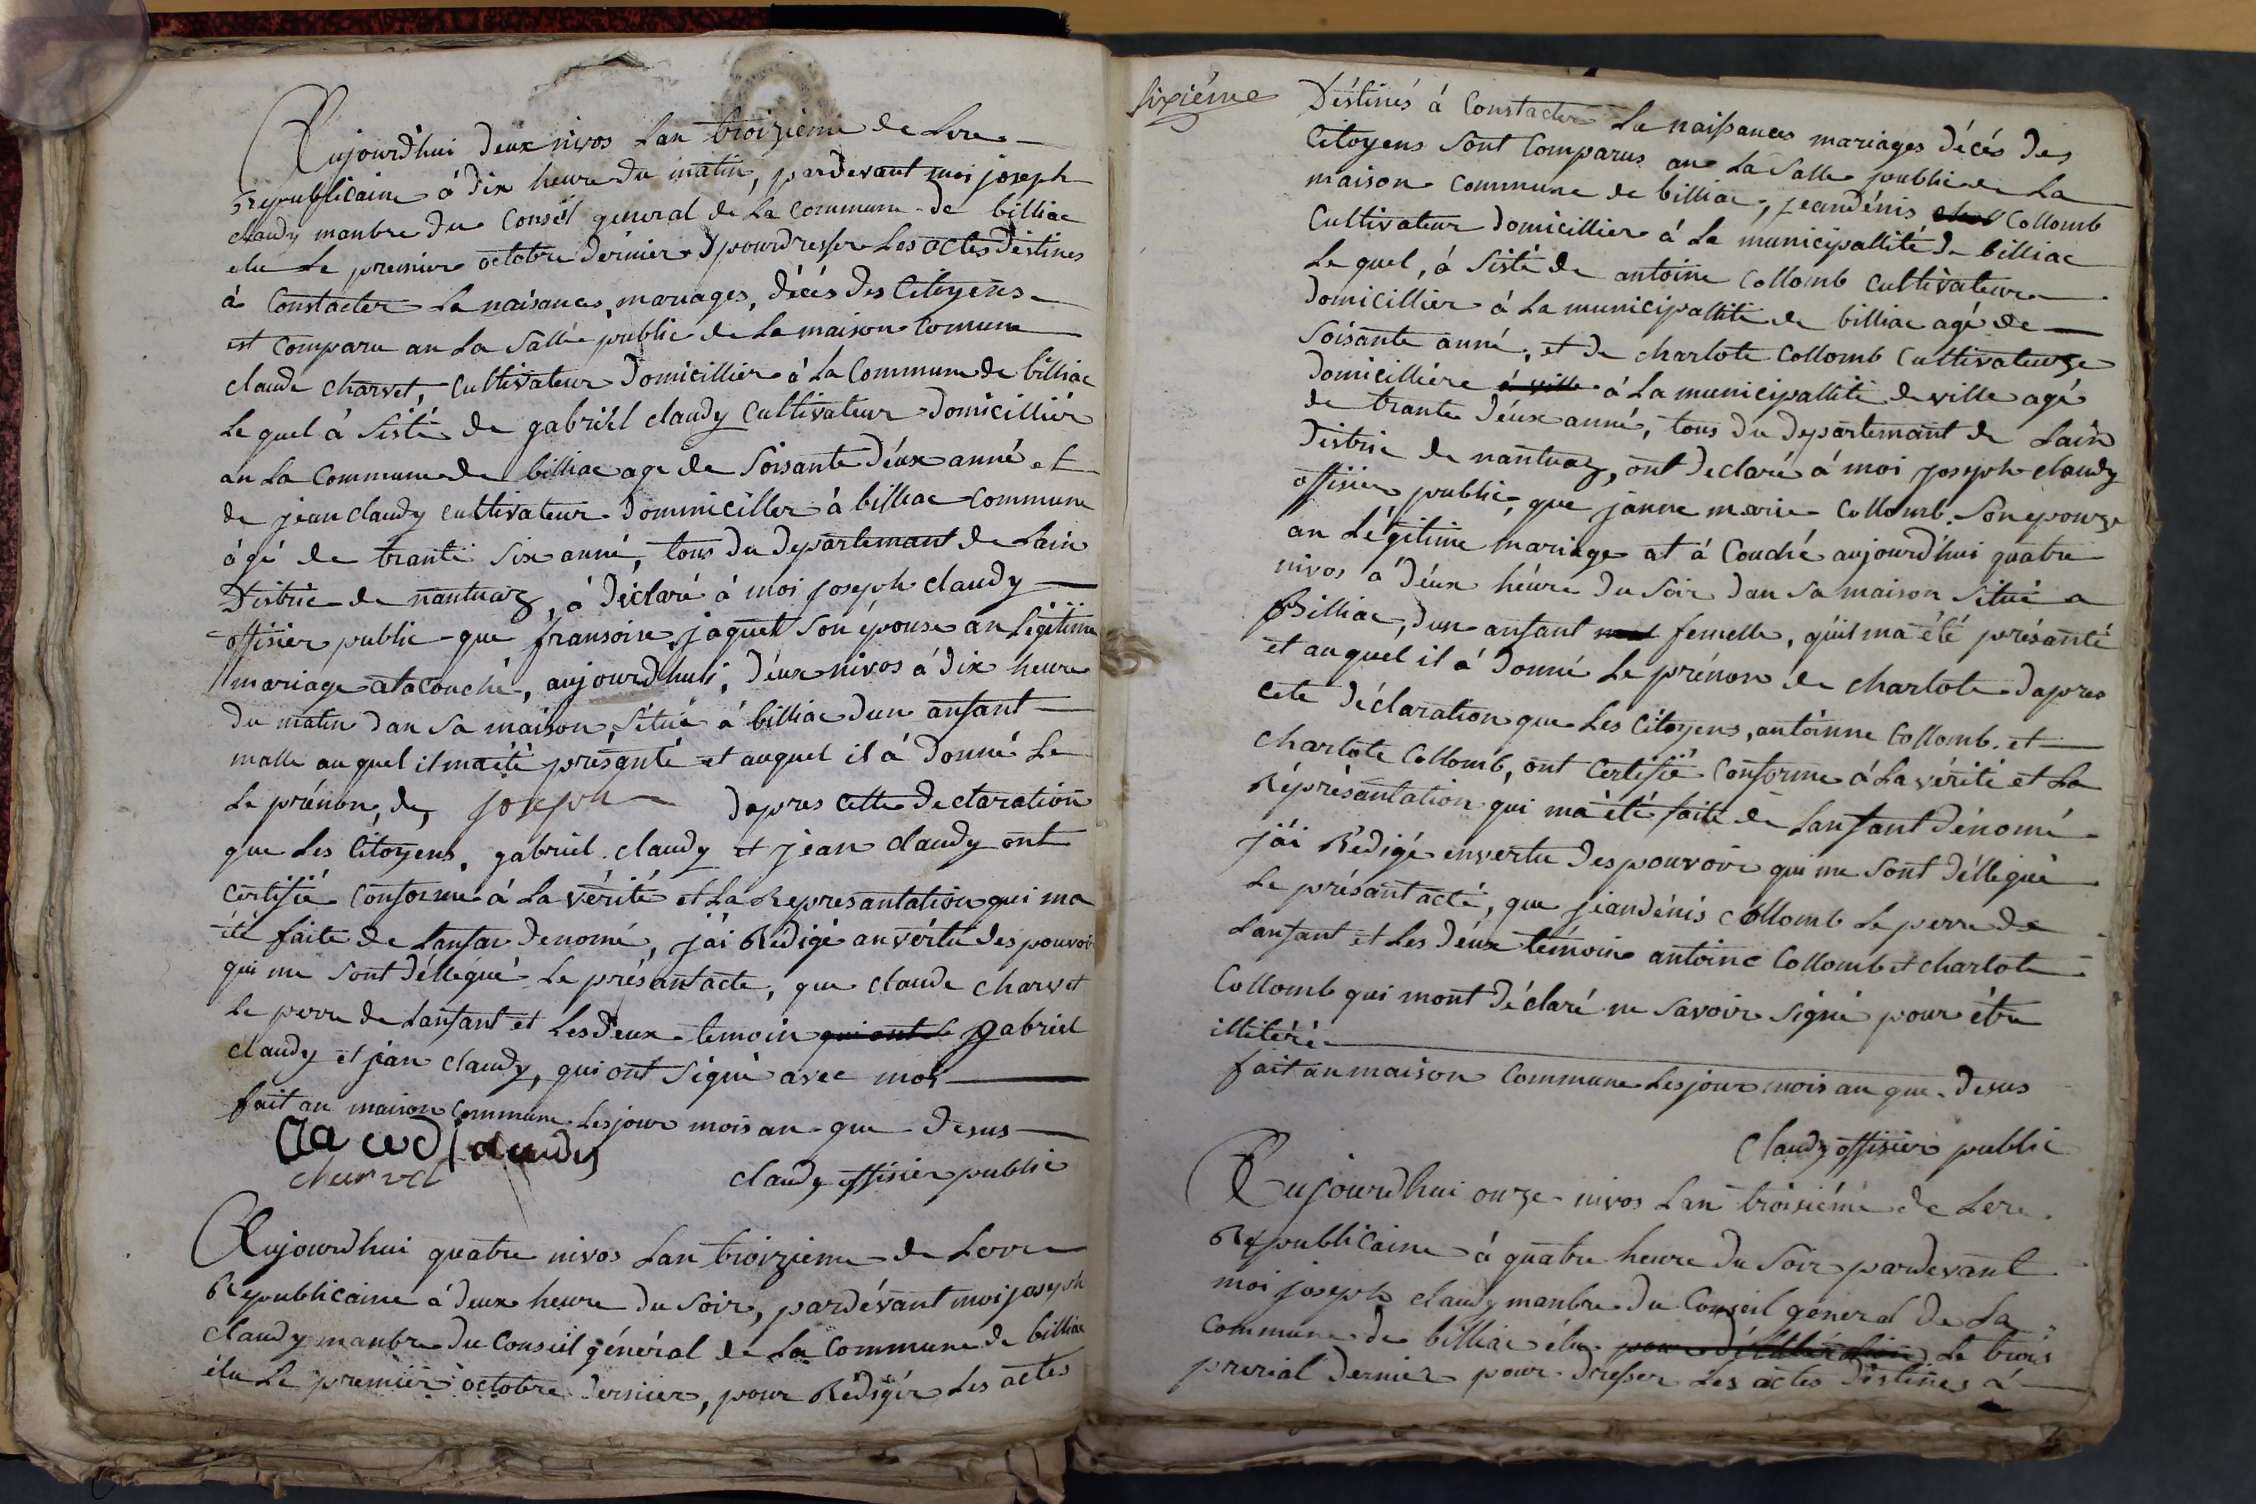 Aujourdhui deux nivos Lan troizieme de Lere
Republicaine à dix heure du matin, pardevant moi joseph
claudy manbre du Conseil general de La Commune de billiac
elu Le premier octobre dernier pour dresser Les actes destines
à Constacter La naisances, mariages, décés des Citoyens
est Comparu an La Salle public de La maison Comune
claude charvet, Cultivateur domicillier à La Commune de billiac
Le quel à sisté de gabriel claudy Cultivateur domicillier
an La Commune de billiac age de Soisante deux anné et
de jean claudy cultivateur dominiciller à billiac Commune
âgé de trante Six anné, tous du departemant de Lain
distric de nantuaz, à déclaré à moi joseph claudy
offisier public que fransoise jaquet Son épouse an Légitime
mariage at acouché, aujourdhui, deux nivos à dix heure
du matin dan Sa maison, Situé à billiac dun anfant
malle au quel il ma été présanté et auquel il à donné Le
Le prénon, de, joseph dapres cette declaration
que Les Citoyens, gabriel claudy et jean claudy ont
certifié Conforme à La vérité et La Représantation qui ma
été faite de Lanfan denomé, j'ai Rédigé an vértu des pouvoir
qui me Sont déllégué Le présant acte, que claude charvet
Le perre de Lanfant et Les deux temoin qui ont L gabriel
claudy et jean claudy, qui ont Signé avec moi
fait an maison Commune Les jour mois an que desus
claudy
charvet claudy offisier public
Aujourdhui quatre nivos Lan troizieme de Lerre
Republicaine à deux heure du Soir, pardévant moi joseph
claudy manbre du Conseil général de La Commune de billiac
élu Le premier octobre dernier, pour Rédiger Les actes
Sixiéme
Déstinés à Constacter La naissances mariages décés des
Citoyens Sont Comparus an La Salle public de La
maison Commune de billiac, jeandénis Collomb
Cultivateur domicillier à La municipallité de billiac
Le quel, à Sisté de antoine Collomb Cultivateur
domicillier à La municipallité de billiac agé de
Soisante anné, et de charlote Collomb Cultivateuze
domicilliére à ville à La municipallité de ville agé
de trante deux anné, tous du departemant de Lain
distric de nantuaz, ont declaré à moi joseph claudy
offisier public, que janne marie Collomb. Son epouze
an Légitime mariage at à Couché aujourd'hui quatre
nivos à déux héure du Soir dan Sa maison Situé a
Billiac, dun anfant mal femelle, quil ma été présanté
et auquel il à donné Le prénon de charlote dapres
cete déclaration que Les Citoyens, antoinne Collomb et
charlote Collomb, ont Certifié Conforme à La vérité et La
Réprésantation qui ma été faite de Lanfant dénomé
j'ai Rédigé en vertu des pouvoir qui me Sont déllégué
Le présant acté, que jeandénis Collomb Le perre de
Lanfant et Les déux témoin antoine Collomb et charlote
Collomb qui mont déclaré ne Savoir Signé pour étre
illitéré
fait an maison Commune Les jour mois an que desus
Claudy offisier public
Aujourdhui onze nivos Lan troisiéme de Lere
Republicaine à quatre heure du Soir pardevant
moi joseph claudy manbre du Conseil general de La
Commune de billiac élu Le trois
prerial dernier pour dresser Les actes déstinés à